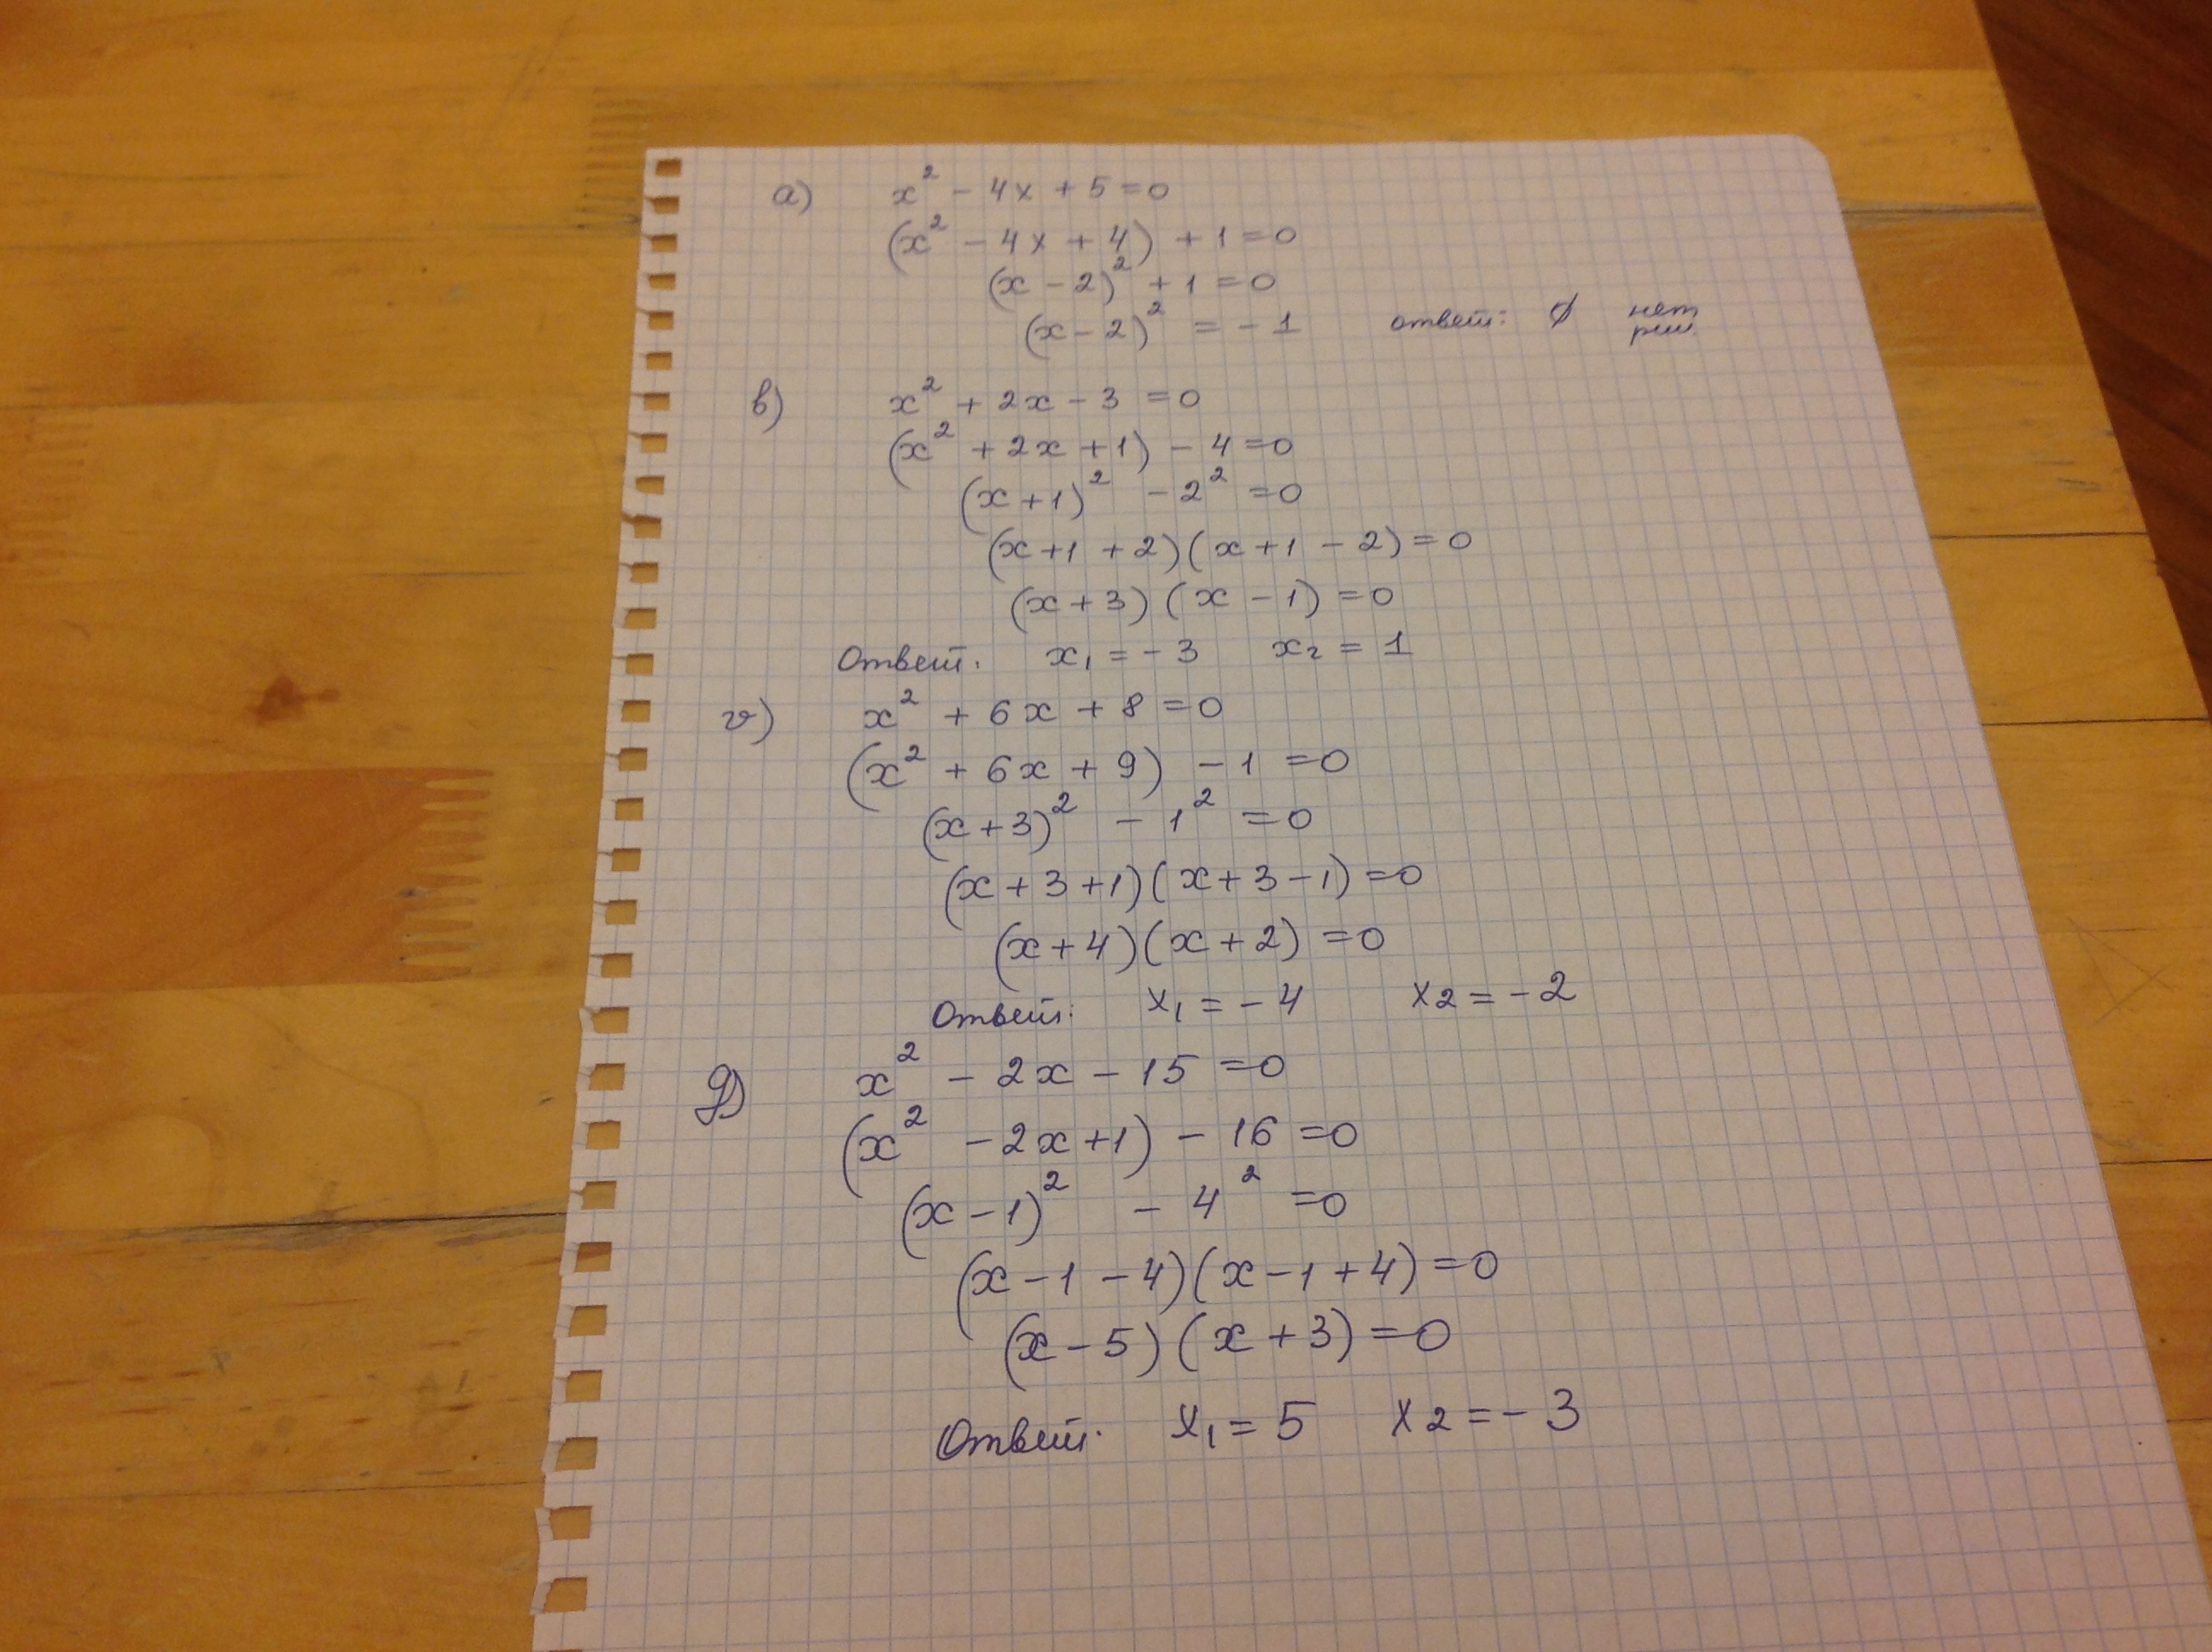 а) x² - 4x + 5 = 0
(x² - 4x + 4) + 1 = 0
(x - 2)² + 1 = 0
(x - 2)² = - 1 ответ: ∅ нет реш.
в) x² + 2x - 3 = 0
(x² + 2x + 1) - 4 = 0
(x + 1)² - 2² = 0
(x + 1 + 2)(x + 1 - 2) = 0
(x + 3)(x - 1) = 0
Ответ. x₁ = - 3 x₂ = 1
г) x² + 6x + 8 = 0
(x² + 6x + 9) - 1 = 0
(x + 3)² - 1² = 0
(x + 3 + 1)(x + 3 - 1) = 0
(x + 4)(x + 2) = 0
Ответ: x₁ = - 4 x₂ = - 2
д) x² - 2x - 15 = 0
(x² - 2x + 1) - 16 = 0
(x - 1)² - 4² = 0
(x - 1 - 4)(x - 1 + 4) = 0
(x - 5)(x + 3) = 0
Ответ. x₁ = 5 x₂ = - 3